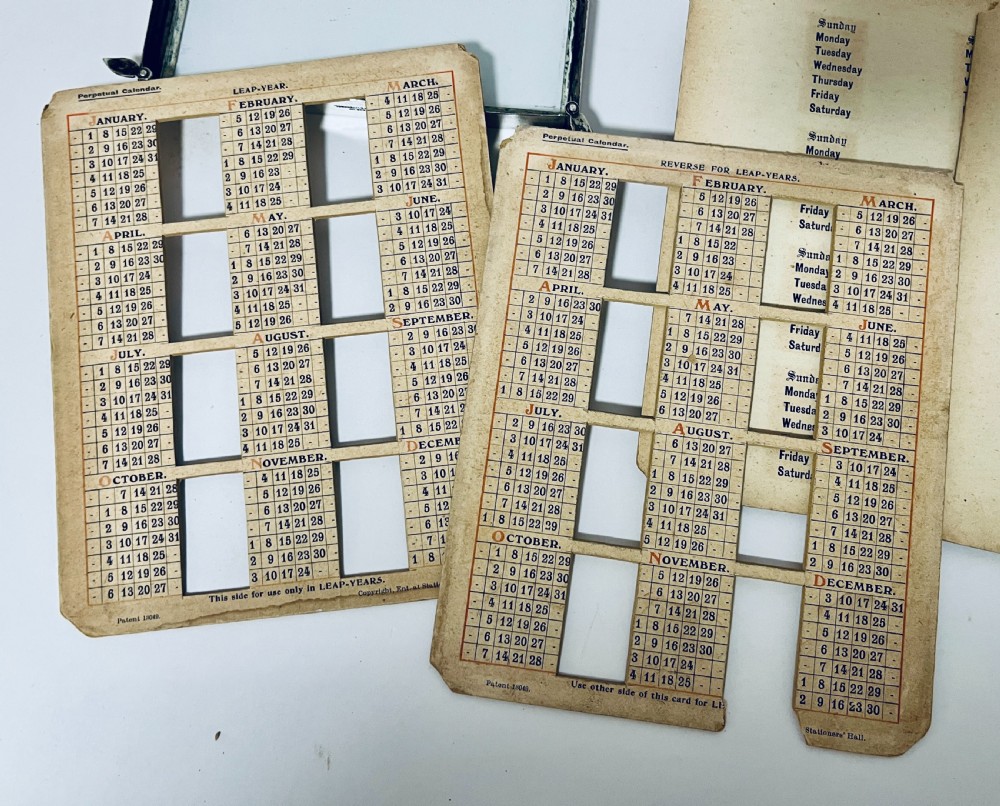 Perpetual Calendar.
LEAP-YEAR.
JANUARY.
1 8 15 22 29
2 9 16 23 30
3 10 17 24 31
4 11 18 25
5 12 19 26
6 13 20 27
7 14 21 28
FEBRUARY.
5 12 19 26
6 13 20 27
7 14 21 28
1 8 15 22 29
2 9 16 23
3 10 17 24
4 11 18 25
MARCH.
4 11 18 25
5 12 19 26
6 13 20 27
7 14 21 28
1 8 15 22 29
2 9 16 23 30
3 10 17 24 31
APRIL.
1 8 15 22 29
2 9 16 23 30
3 10 17 24
4 11 18 25
5 12 19 26
6 13 20 27
7 14 21 28
MAY.
6 13 20 27
7 14 21 28
1 8 15 22 29
2 9 16 23 30
3 10 17 24 31
4 11 18 25
5 12 19 26
JUNE.
3 10 17 24
4 11 18 25
5 12 19 26
6 13 20 27
7 14 21 28
1 8 15 22 29
2 9 16 23 30
JULY.
1 8 15 22 29
2 9 16 23 30
3 10 17 24 31
4 11 18 25
5 12 19 26
6 13 20 27
7 14 21 28
AUGUST.
5 12 19 26
6 13 20 27
7 14 21 28
1 8 15 22 29
2 9 16 23 30
3 10 17 24 31
4 11 18 25
SEPTEMBER.
2 9 16 23 30
3 10 17 24
4 11 18 25
5 12 19 26
6 13 20 27
7 14 21
1 8 15 22
OCTOBER.
7 14 21 28
1 8 15 22 29
2 9 16 23 30
3 10 17 24 31
4 11 18 25
5 12 19 26
6 13 20 27
NOVEMBER.
4 11 18 25
5 12 19 26
6 13 20 27
7 14 21 28
1 8 15 22 29
2 9 16 23 30
3 10 17 24
DECEMB
2 9 16
3 10
4 11
5 12
6 13
7 14
1 8
This side for use only in LEAP-YEARS.
Patent 18049.
Copyright. Ent. at Stati
Perpetual Calendar.
REVERSE FOR LEAP-YEARS.
JANUARY.
1 8 15 22 29
2 9 16 23 30
3 10 17 24 31
4 11 18 25
5 12 19 26
6 13 20 27
7 14 21 28
FEBRUARY.
5 12 19 26
6 13 20 27
7 14 21 28
1 8 15 22
2 9 16 23
3 10 17 24
4 11 18 25
Friday
Saturd
Sunda
Monda
Tuesda
Wednes
MARCH.
5 12 19 26
6 13 20 27
7 14 21 28
1 8 15 22 29
2 9 16 23 30
3 10 17 24 31
4 11 18 25
APRIL.
2 9 16 23 30
3 10 17 24
4 11 18 25
5 12 19 26
6 13 20 27
7 14 21 28
1 8 15 22 29
MAY.
7 14 21 28
1 8 15 22 29
2 9 16 23 30
3 10 17 24 31
4 11 18 25
5 12 19 26
6 13 20 27
Friday
Saturd
Sunda
Monda
Tuesda
Wednes
JUNE.
4 11 18 25
5 12 19 26
6 13 20 27
7 14 21 28
1 8 15 22 29
2 9 16 23 30
3 10 17 24
JULY.
2 9 16 23 30
3 10 17 24 31
4 11 18 25
5 12 19 26
6 13 20 27
7 14 21 28
1 8 15 22 29
AUGUST.
6 13 20 27
7 14 21 28
1 8 15 22 29
2 9 16 23 30
3 10 17 24 31
4 11 18 25
5 12 19 26
Friday
Saturd
SEPTEMBER.
3 10 17 24
4 11 18 25
5 12 19 26
6 13 20 27
7 14 21 28
1 8 15 22 29
2 9 16 23 30
OCTOBER.
1 8 15 22 29
2 9 16 23 30
3 10 17 24 31
4 11 18 25
5 12 19 26
6 13 20 27
7 14 21 28
NOVEMBER.
5 12 19 26
6 13 20 27
7 14 21 28
1 8 15 22 29
2 9 16 23 30
3 10 17 24
4 11 18 25
DECEMBER.
3 10 17 24 31
4 11 18 25
5 12 19 26
6 13 20 27
7 14 21 28
1 8 15 22 29
2 9 16 23 30
Patent 18049.
Use other side of this card for LE
Stationers' Hall.
Sunday
Monday
Tuesday
Wednesday
Thursday
Friday
Saturday
Sunday
Monday